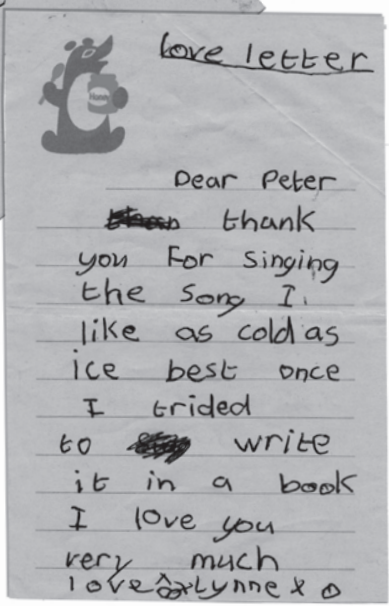 love letter
Dear Peter
thank
you For Singing
the Song I
like as cold as
ice best once
I trided
to write
it in a book
I love you
very much
love Lynne x o